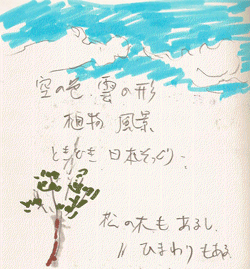 空の色、雲の形
植物 風景
ときどき 日本そっくり–
松の木も あるし
〃 ひまわりもある